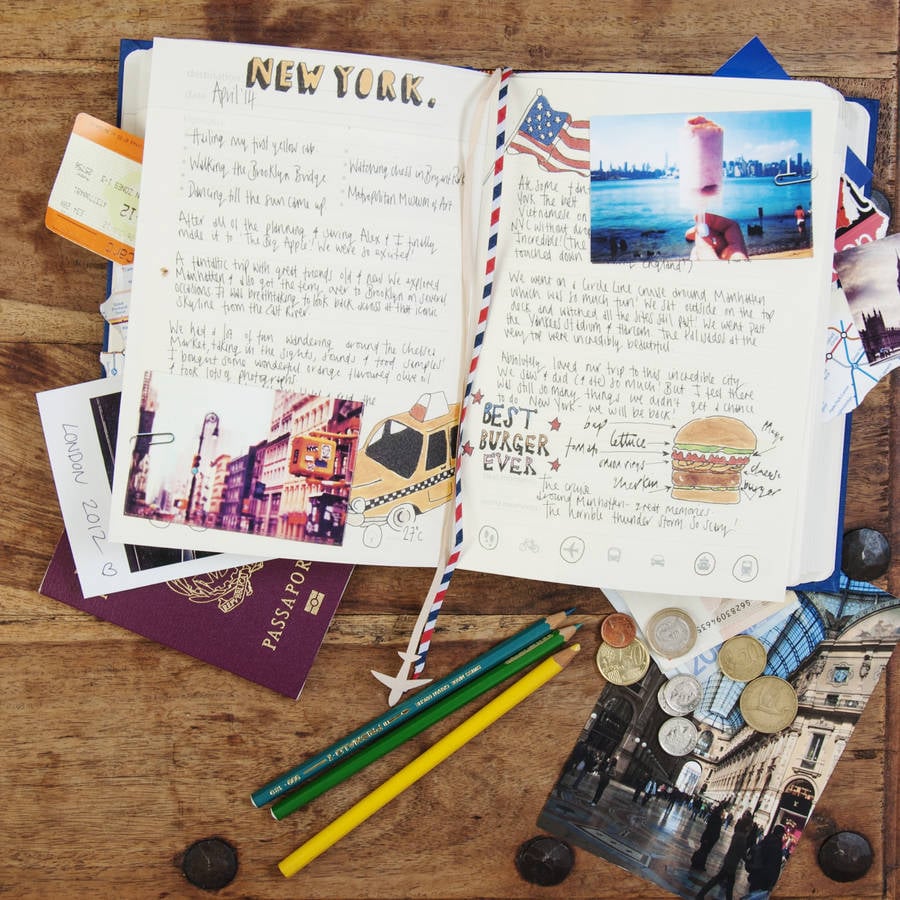 destination
NEW YORK.
date April '14
Hailing my first yellow cab
Walking the Brooklyn Bridge
Dancing till the sun came up
Watching chess in Bryant Park
Metropolitan Museum of Art
After all of the planning & saving Alex & I finally
made it to 'The Big Apple'! We were so excited!
A fantastic trip with great friends old & new. We explored
Manhattan & also got the ferry over to Brooklyn on several
occasions. It was breathtaking to look back across at that iconic
skyline from the East River.
We had a lot of fun wandering around the Chelsea
Market, taking in the sights, sounds & food samples!
I bought some wonderful orange flavoured olive oil
& took lots of photographs
the
27°c
At some
York. The best
Vietnamese
NYC without
Incredible! (The
touched down England")
We went on a Circle Line cruise around Manhattan
which was so much fun! We sat outside on the top
deck and watched all the sites roll past! We went past
the Yankees Stadium & Harlem. The Palisades at the
very top were incredibly beautiful.
Absolutely loved our trip to this incredible city.
We saw & did (& ate) so much! But I feel there
was still so many things we didn't get a chance
to do. New York - we will be back!
BEST
BURGER
EVER
bap
lettuce
tomato
onion rings
gherkin
Mayo
cheese
burger
The cruise
around Manhattan - great memories.
The horrible thunder storm. So scary!
LONDON 2012
PASSAPORT